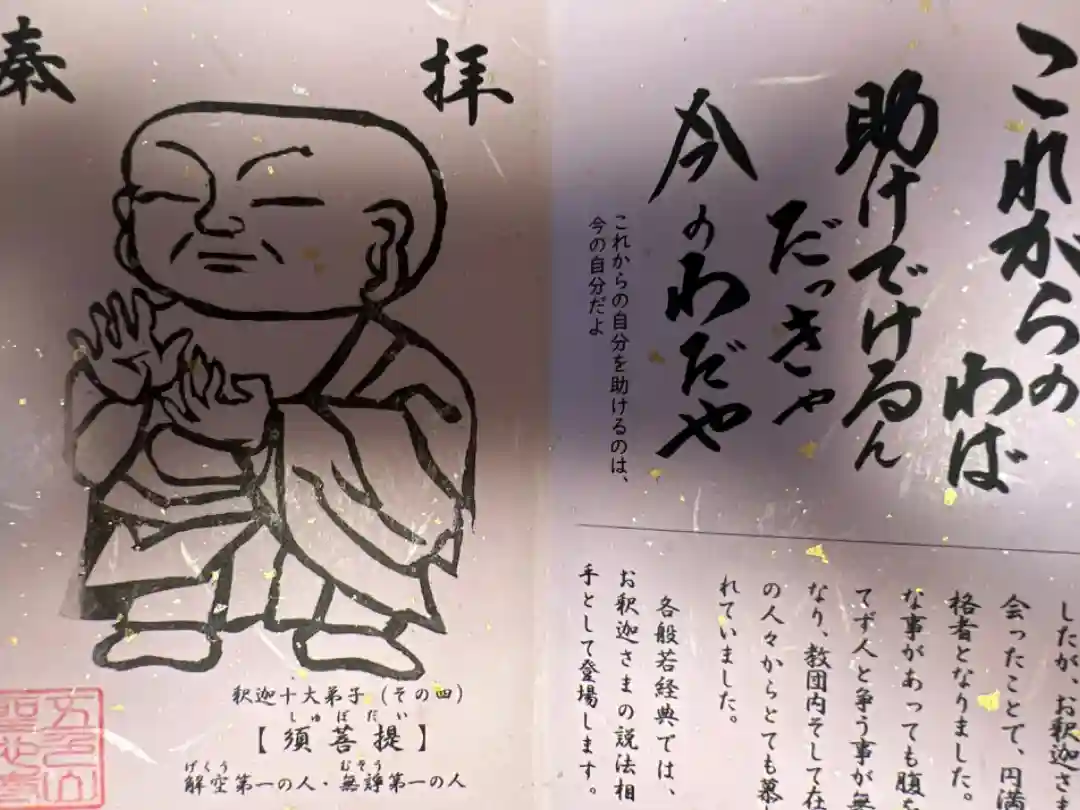 これがらの
わば
助けでけるん
だっきゃ
今のわだや
これからの自分を助けるのは、
今の自分だよ
したが、お釈迦さま
会ったことで、円満
格者となりました。
な事があっても腹
てず人と争う事が無
なり、教団内そして在
の人々からとても慕
れていました。
各般若経典では、
お釈迦さまの説法相
手として登場します。
奉
拝
釈迦十大弟子（その四）
しゅぼだい
【須菩提】
げくう むそう
解空第一の人・無諍第一の人